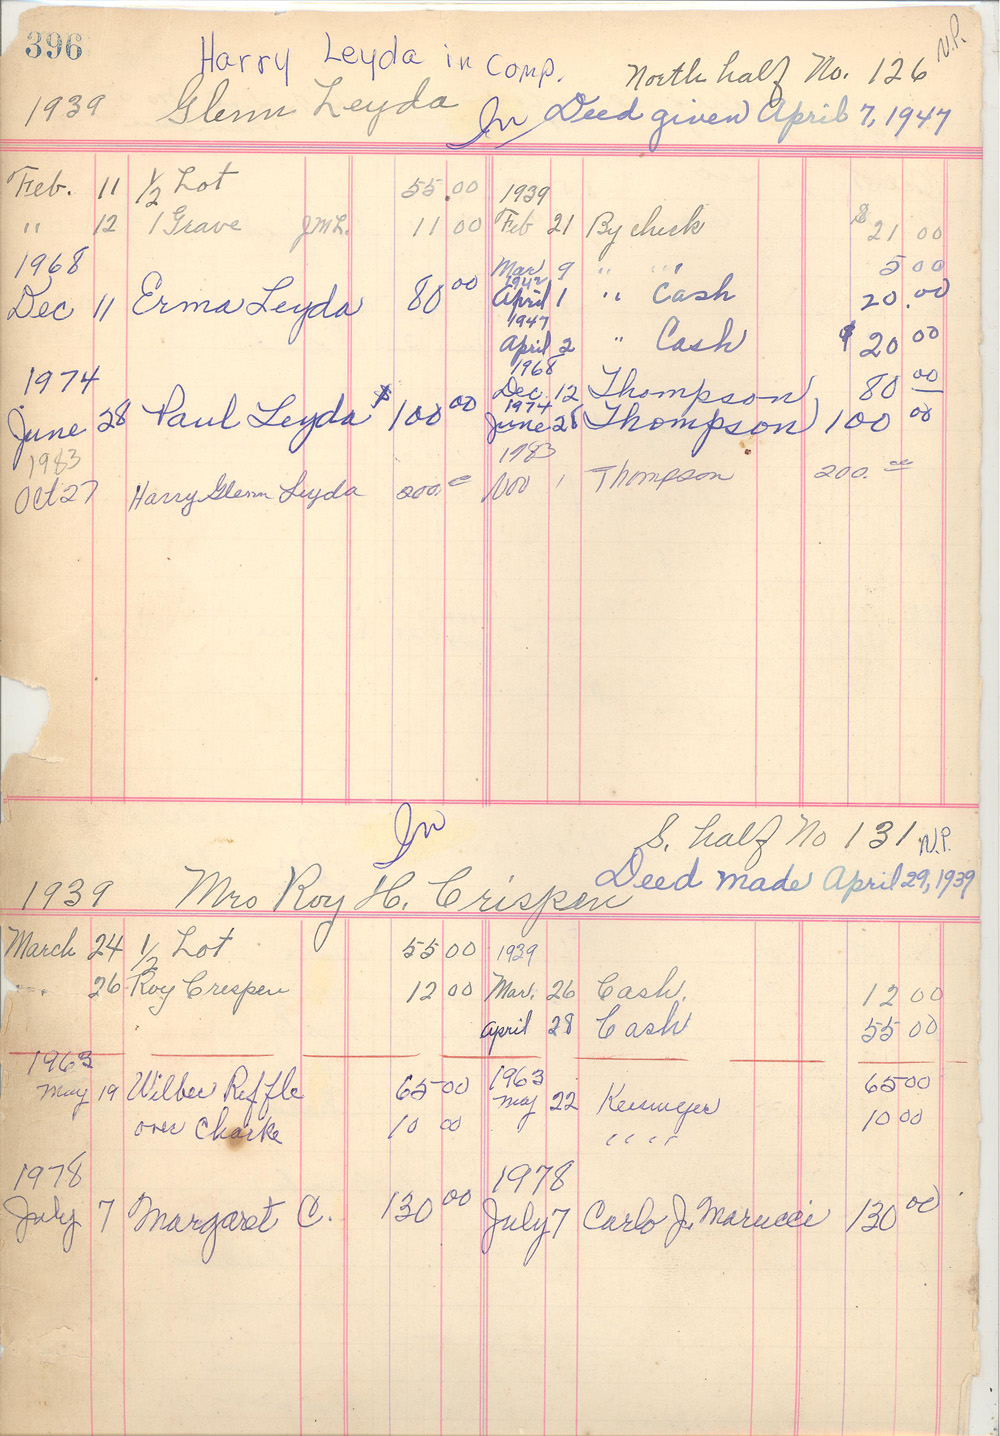 396
Harry Leyda in comp.
North half No. 126 N.P.
1939 Glenn Leyda In Deed given April 7, 1947
Feb. 11 ½ Lot 55.00 1939
" 12 1 Grave J.M.L. 11 00 Feb 21 By check $21 00
1968 Mar 9 " " 5 00
1942
Dec 11 Erma Leyda 80 00 April 1 " Cash 20.00
1947
April 2 " Cash $20 00
1968
1974 Dec. 12 Thompson 80 00
1974
June 28 Paul Leyda $100 00 June 28 Thompson 100 00
1983 1983
Oct 27 Harry Glenn Leyda 200. Nov 1 Thompson 200. 00
In S. half No 131 N.P.
Deed made April 29, 1939
1939 Mrs Roy H. Crispen
March 24 ½ Lot 55 00 1939
" 26 Roy Crespen 12 00 Mar. 26 Cash. 12 00
April 28 Cash 55 00
1963 1963
May 19 Wilber Reffle 65 00 May 22 65 00
over 10 00 " " 10 00
1978 1978
July 7 Margaret C. 130 00 July 7 Carlo J. Marucci 130 00